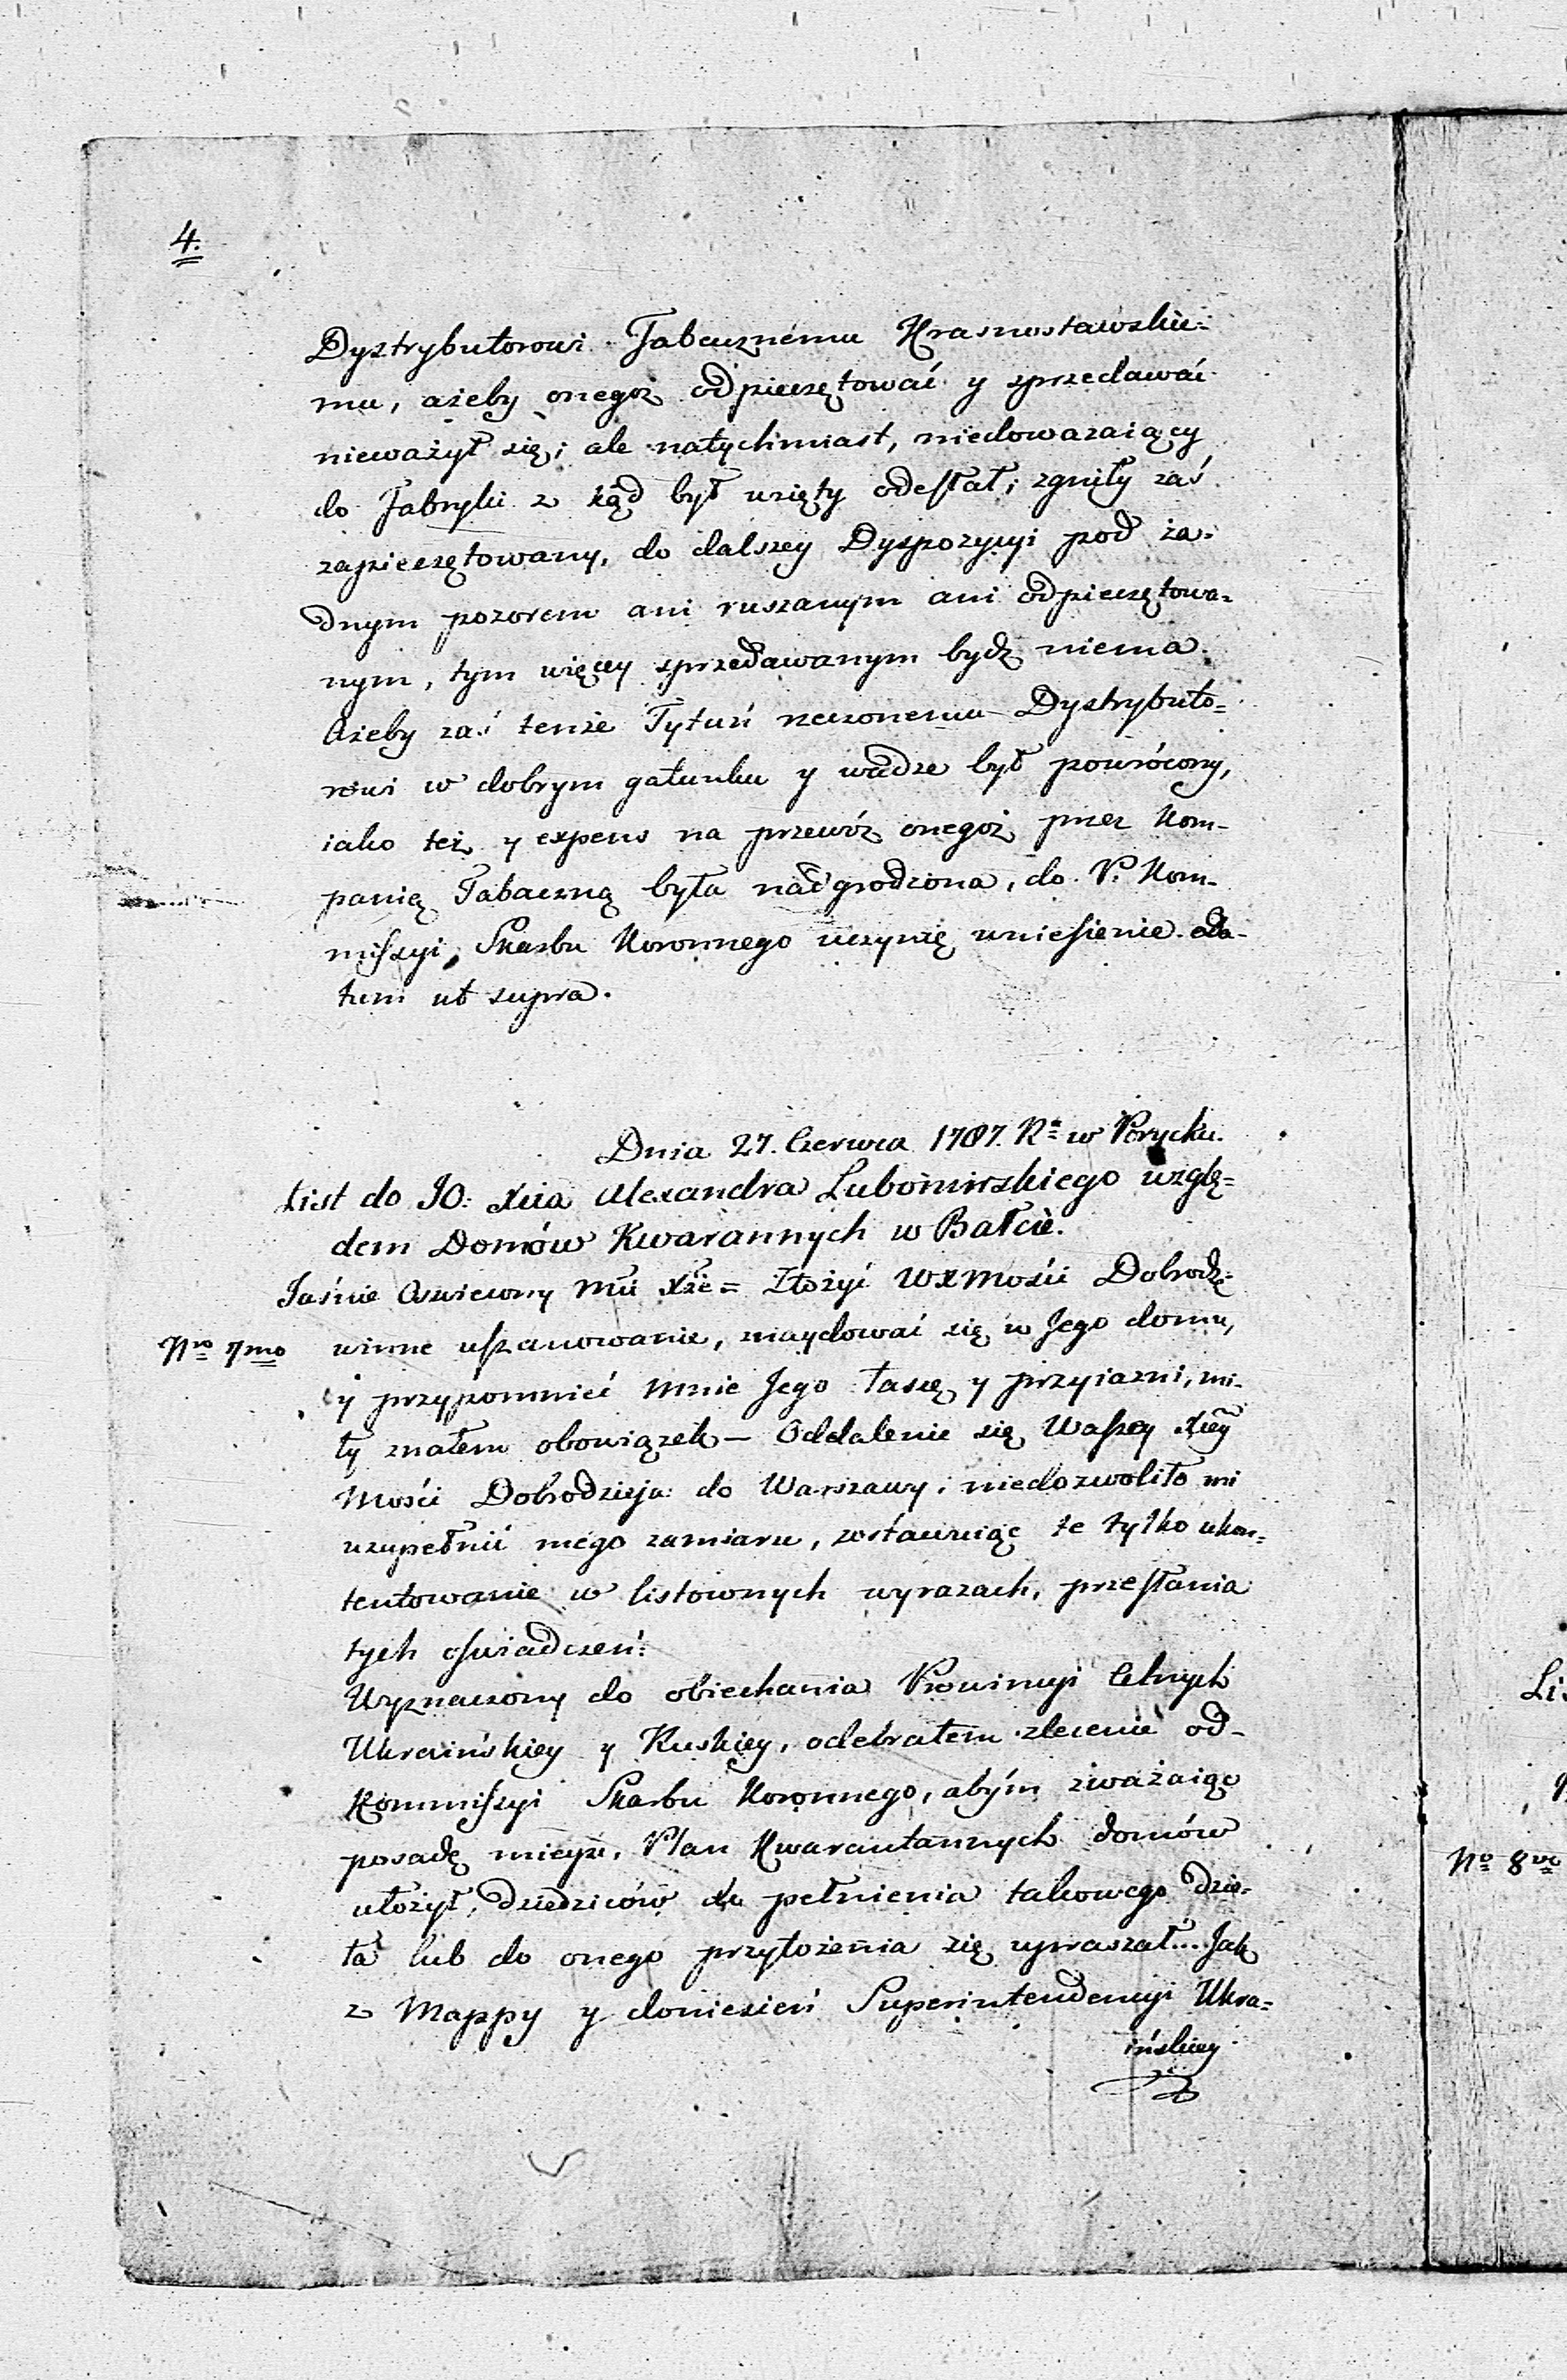 4.
Dystrybutorowi Tabacznemu Krasnostawskie=
mu, ażeby onegoż odpieczętować y sprzedawać
nieważył się; ale natychmiast, niedowarzaiący
do Fabryki z kąd był wzięty odesłał; zgniły zaś
zapieczętowany, do dalszey Dyspozycyi pod ża=
dnym pozorem ani ruszanym ani odpieczętowa=
nym, tym więcey sprzedawanym bydź niema.
Ażeby zaś tenże Tytuń rzeczonemu Dystrybuto=
rowi w dobrym gatunku y wadze był powrócony,
iako też y expens na przewóz onegoż przez Kom-
panią Tabaczną była nadgrodzona, do P. Kom-
missyi Skarbu Koronnego uczynię wniesienie. Da-
tum ut supra.
Dnia 27. Czerwca 1787. Rº w Porycku.
List do JO: Xcia Alexandra Lubomirskiego wzglę=
dem Domów Kwarannych w Bałcie.
Jaśnie Oswiecony Mci Xże = Złożyć WXMości Dobrodz:
Nro 7mo winne uszanowanie, znaydować się w Jego domu,
y przypomnieć mnie Jego łasce y przyiazni, mi-
ły znałem obowiązek — Oddalenie się Waszey Xcey
Mości Dobrodzieja do Warszawy, niedozwoliło mi
uzupełnić mego zamiaru, zostawuiąc te tylko ukon=
tentowanie w listownych wyrazach, przesłania
tych oświadczeń:
Wyznaczony do obiechania Prowincyi Celnych
Ukraińskiey y Ruskiey, odebrałem zlecenie od
Kommissyi Skarbu Koronnego, abym zważaiąc
posadę mieysc, Plan Kwarantannych domów
ułożył, Dziedziców do pełnienia takowego dzie=
ła lub do onego przyłożenia się upraszał.... Jak
z Mappy y doniesień Superintendencyi Ukra=
ińskiey
Li
No 8vo